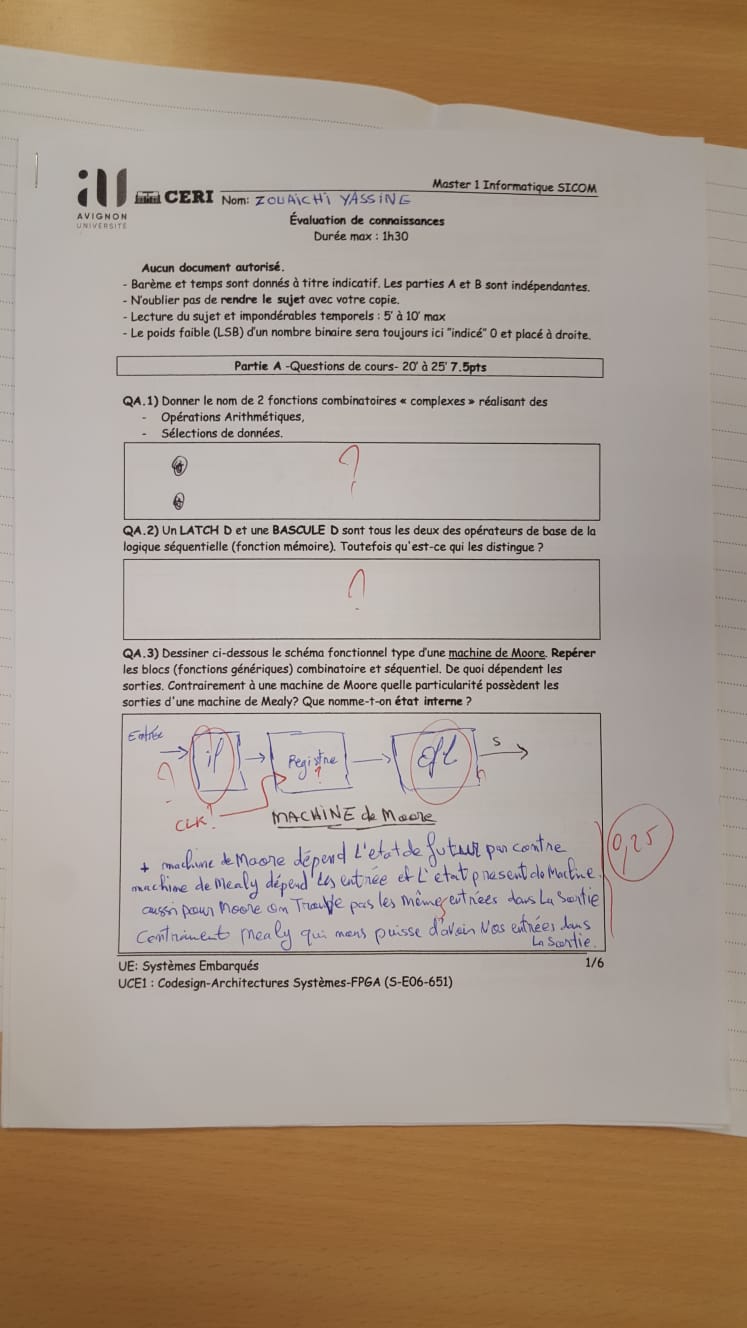 AVIGNON
UNIVERSITÉ
CERI Nom: ZOUAICHI YASSINE
Master 1 Informatique SICOM
Évaluation de connaissances
Durée max : 1h30
Aucun document autorisé.
- Barème et temps sont donnés à titre indicatif. Les parties A et B sont indépendantes.
- N'oublier pas de rendre le sujet avec votre copie.
- Lecture du sujet et impondérables temporels : 5' à 10' max
- Le poids faible (LSB) d'un nombre binaire sera toujours ici "indicé" 0 et placé à droite.
Partie A -Questions de cours- 20' à 25' 7.5pts
QA.1) Donner le nom de 2 fonctions combinatoires « complexes » réalisant des
- Opérations Arithmétiques,
- Sélections de données.
?
QA.2) Un LATCH D et une BASCULE D sont tous les deux des opérateurs de base de la
logique séquentielle (fonction mémoire). Toutefois qu'est-ce qui les distingue ?
?
QA.3) Dessiner ci-dessous le schéma fonctionnel type d'une machine de Moore. Repérer
les blocs (fonctions génériques) combinatoire et séquentiel. De quoi dépendent les
sorties. Contrairement à une machine de Moore quelle particularité possèdent les
sorties d'une machine de Mealy? Que nomme-t-on état interne ?
Entrée
?
Registre
?
S
CLK!
MACHINE de Moore
0,25
+ machine de Moore dépend L'etat de futur par contre
machine de Mealy dépend les entrée et L'état present de Machine.
aussi pour Moore on Trouve pas les même entrées dans La Sortie
Contriment Mealy qui mons puisse d'avoir Nos entrées dans
La Sortie.
UE: Systèmes Embarqués
1/6
UCE1 : Codesign-Architectures Systèmes-FPGA (S-E06-651)